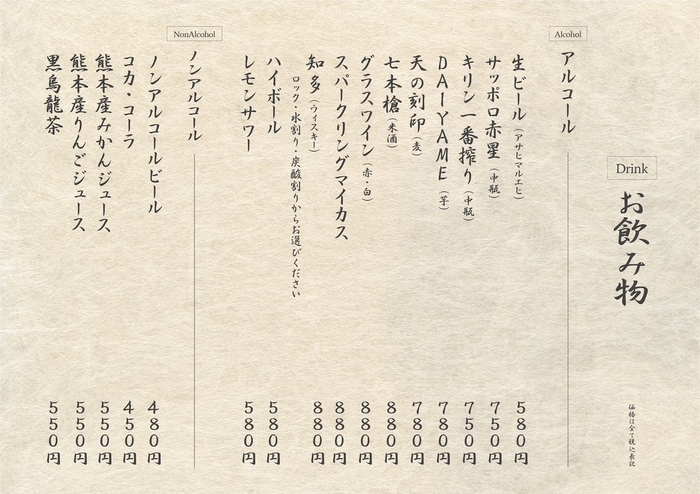 Drink
お飲み物
価格は全て税込表記
Alcohol
アルコール
生ビール（アサヒマルエヒ） 580円
サッポロ赤星（中瓶） 750円
キリン一番搾り（中瓶） 750円
DAIYAME（芋） 780円
天の刻印（麦） 780円
七本槍（米酒） 880円
グラスワイン（赤・白） 880円
スパークリングマイカス 880円
知多（ウィスキー） 880円
ロック・水割り・炭酸割りからお選びください
ハイボール 580円
レモンサワー 580円
NonAlcohol
ノンアルコール
ノンアルコールビール 480円
コカ・コーラ 450円
熊本産みかんジュース 550円
熊本産りんごジュース 550円
黒烏龍茶 550円